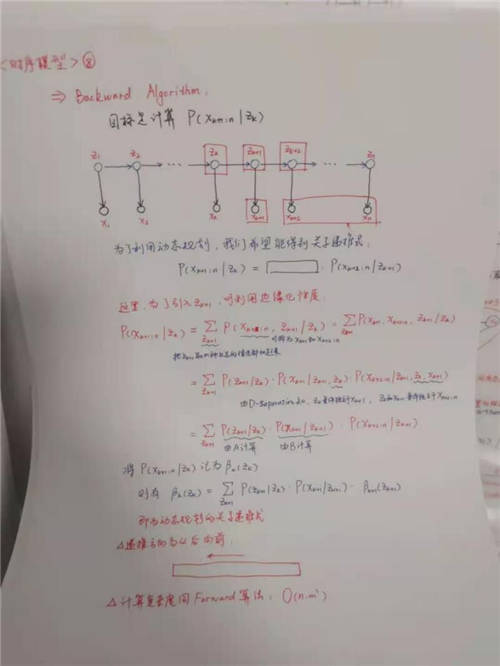 <时序模型> ⑧
⇒ Backward Algorithm.
目标是计算 P(x_{k+1:n}|z_k)
z_1 z_2 ... z_k z_{k+1} z_{k+2} ... z_n
x_1 x_2 x_k x_{k+1} x_{k+2} x_n
为了利用动态规划，我们希望能得到关于递推式：
P(x_{k+1:n}|z_k) = □ · P(x_{k+2:n}|z_{k+1})
这里，为了引入z_{k+1}，可利用边缘化性质：
P(x_{k+1:n}|z_k) = Σ_{z_{k+1}} P(x_{k+1:n}, z_{k+1}|z_k) = Σ_{z_{k+1}} P(x_{k+1}, x_{k+2:n}, z_{k+1}|z_k)
可拆为x_{k+1}和x_{k+2:n}
= Σ_{z_{k+1}} P(z_{k+1}|z_k) · P(x_{k+1}|z_{k+1}, z_k) · P(x_{k+2:n}|z_{k+1}, z_k, x_{k+1})
由D-separation
= Σ_{z_{k+1}} P(z_{k+1}|z_k) · P(x_{k+1}|z_{k+1}) · P(x_{k+2:n}|z_{k+1})
由A计算 由B计算
将 P(x_{k+1:n}|z_k) 记为 β_k(z_k)
则有 β_k(z_k) = Σ_{z_{k+1}} P(z_{k+1}|z_k) · P(x_{k+1}|z_{k+1}) · β_{k+1}(z_{k+1})
即为动态规划的关于递推式
△ 递推方向为从后向前：
△ 计算复杂度同Forward算法：O(n·m²)